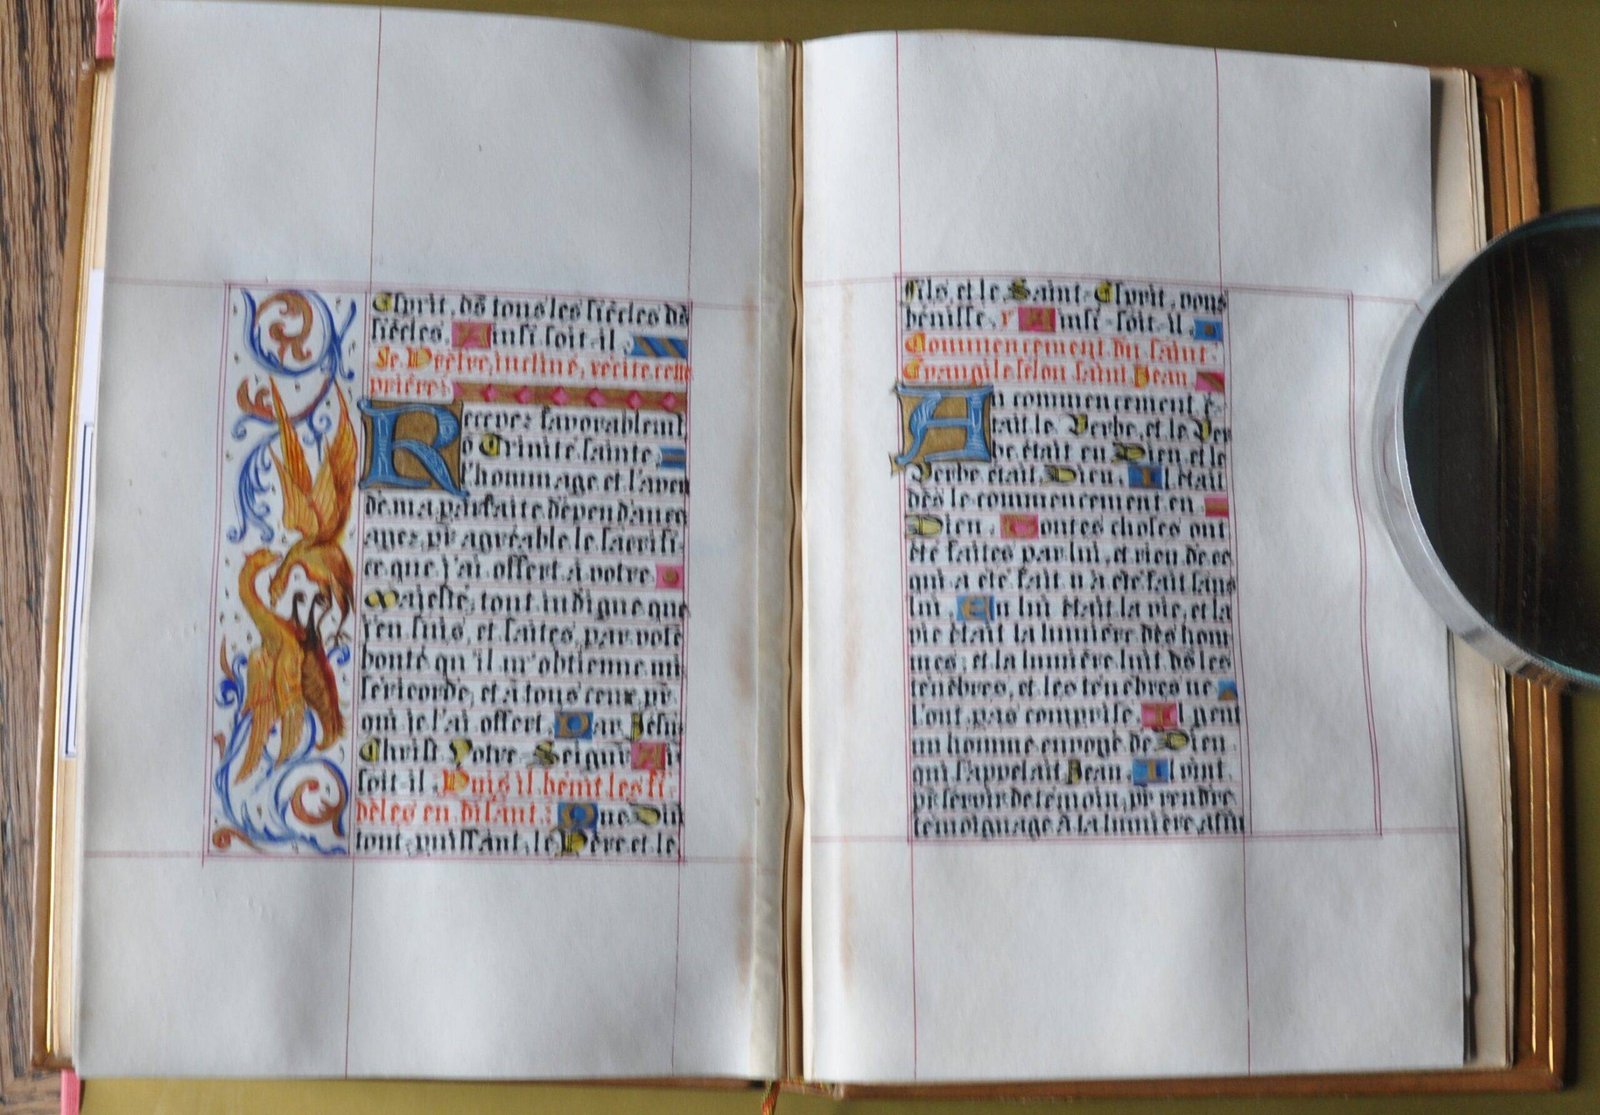 Esprit, ds tous les siècles ds
siècles. Ainsi soit-il.
Le Prêtre, incliné, récite cette
prière:
Recevez favorablemt,
ô Trinité sainte
l'hommage et l'aveu
de ma parfaite dépendance
ayez pr agréable le sacrifi-
ce que j'ai offert à votre
Majesté; tout indigne que
j'en suis, et faites, par votre
bonté qu'il m'obtienne mi-
séricorde, et à tous ceux pr
qui je l'ai offert. Par Jésus
Christ Notre Seigнr Ai
soit-il. Puis il bénit les fi-
dèles en disant: Que Din
tout-puissant, le Père et le
Fils, et le Saint-Esprit, vous
bénisse. r Ainsi-soit-il.
Commencement du saint
Evangile selon saint Jean.
Au commencement é-
tait le Verbe, et le Ver
be était en Dieu, et le
Verbe était Dieu. Il était
dès le commencement en
Dieu. Toutes choses ont
été faites par lui, et rien de ce
qui a été fait n'a été fait sans
lui. En lui était la vie, et la
vie était la lumière des hom
mes; et la lumière luit ds les
ténèbres, et les ténèbres ne
l'ont pas comprise. Il y eut
un homme envoyé de Dieu
qui s'appelait Jean. Il vint
pr servir de témoin, pr rendre
témoignage à la lumière, afin